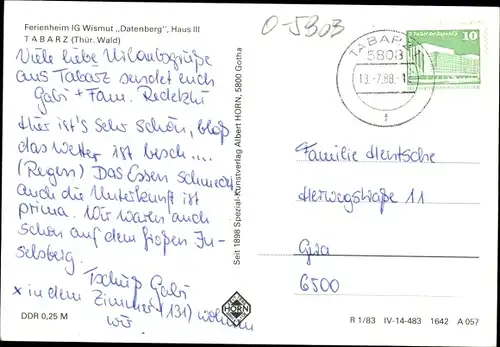 Ferienheim IG Wismut „Datenberg", Haus III
TABARZ (Thür. Wald)
Viele liebe Urlaubsgrüße
aus Tabarz sendet euch
Gabi + Fam.
Hier ist's sehr schön, bloß
das Wetter ist besch....
(Regen) Das Essen schmeckt
auch die Unterkunft ist
prima. Wir waren auch
schon auf dem großen In-
selsberg.
Tschüß Gabi
x in dem Zimmer (131) wohnen
wir
DDR 0,25 M
Seit 1898 Spezial-Kunstverlag Albert HORN, 5800 Gotha
HORN
O-5803
TABARZ
5808
13.-7.88.-1
f
10
Familie Hentsche
Herwegstraße 11
Gera
6500
R 1/83 IV-14-483 1642 A 057